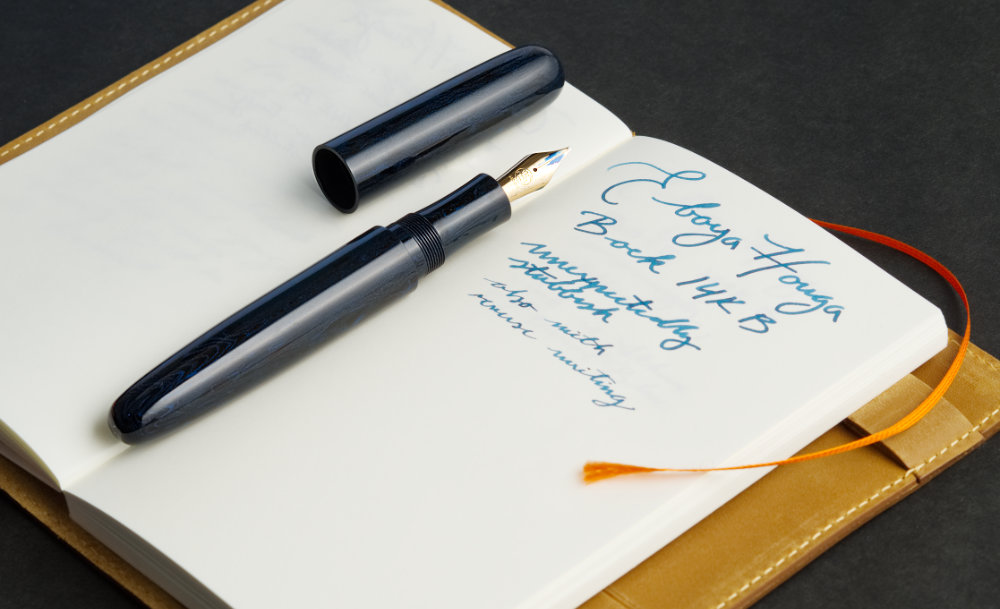 Eboya Houga
Bock 14K B
unexpectedly
stubbish
also with
reverse writing